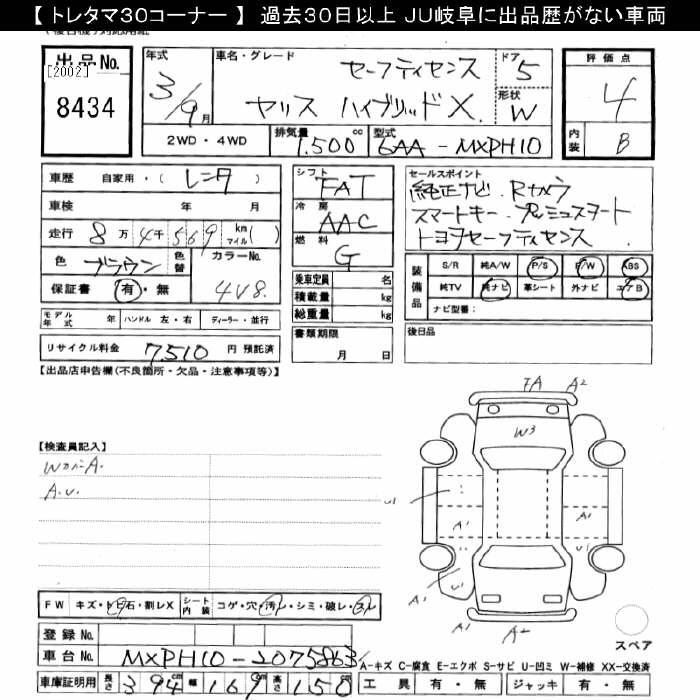 【 トレタマ30コーナー 】 過去30日以上 JU岐阜に出品歴がない車両
出品No.
[2002]
8434
年式
3/9月
車名・グレード
セーフティセンス
ヤリス ハイブリッドX.
ドア
5
形状
W
評価点
4
内装
B
2WD ・ 4WD
排気量
1.500cc
型式
6AA - MXPH10
車歴 自家用・( レンタ )
車検 年 月
走行 8万 4千 569 km マイル( )
色 ブラウン
色替
カラーNo.
4V8.
保証書 有・無
シフト
FAT
冷房
AAC
燃料
G
乗車定員 名
積載量 kg
総重量 kg
セールスポイント
純正ナビ Rカメラ
スマートキー プッシュスタート
トヨタセーフティセンス
装備品
S/R 純A/W P/S P/W ABS
純TV 純ナビ 革シート 外ナビ エアB
ナビ型番:
モデル年式 年 ハンドル 左・右 ディーラー・並行
リサイクル料金 7,510 円 預託済
書類期限
月 日
後日品
【出品店申告欄(不良箇所・欠品・注意事項等)】
FA A2
W3
【検査員記入】
Wカバー A.
A.U.
U1
A1
A1
A1
U1
A1
U1
A2
FW キズ・ト石・割レX
シート内装 コゲ・穴・汚レ・シミ・破レ・スレ
登録No.
車台No. MXPH10-2075863
スペア
A-キズ C-腐食 E-エクボ S-サビ U-凹ミ W-補修 XX-交換済
車庫証明用 長さ 394cm 幅 169cm 高さ 150cm
工具 有・無 ジャッキ 有・無